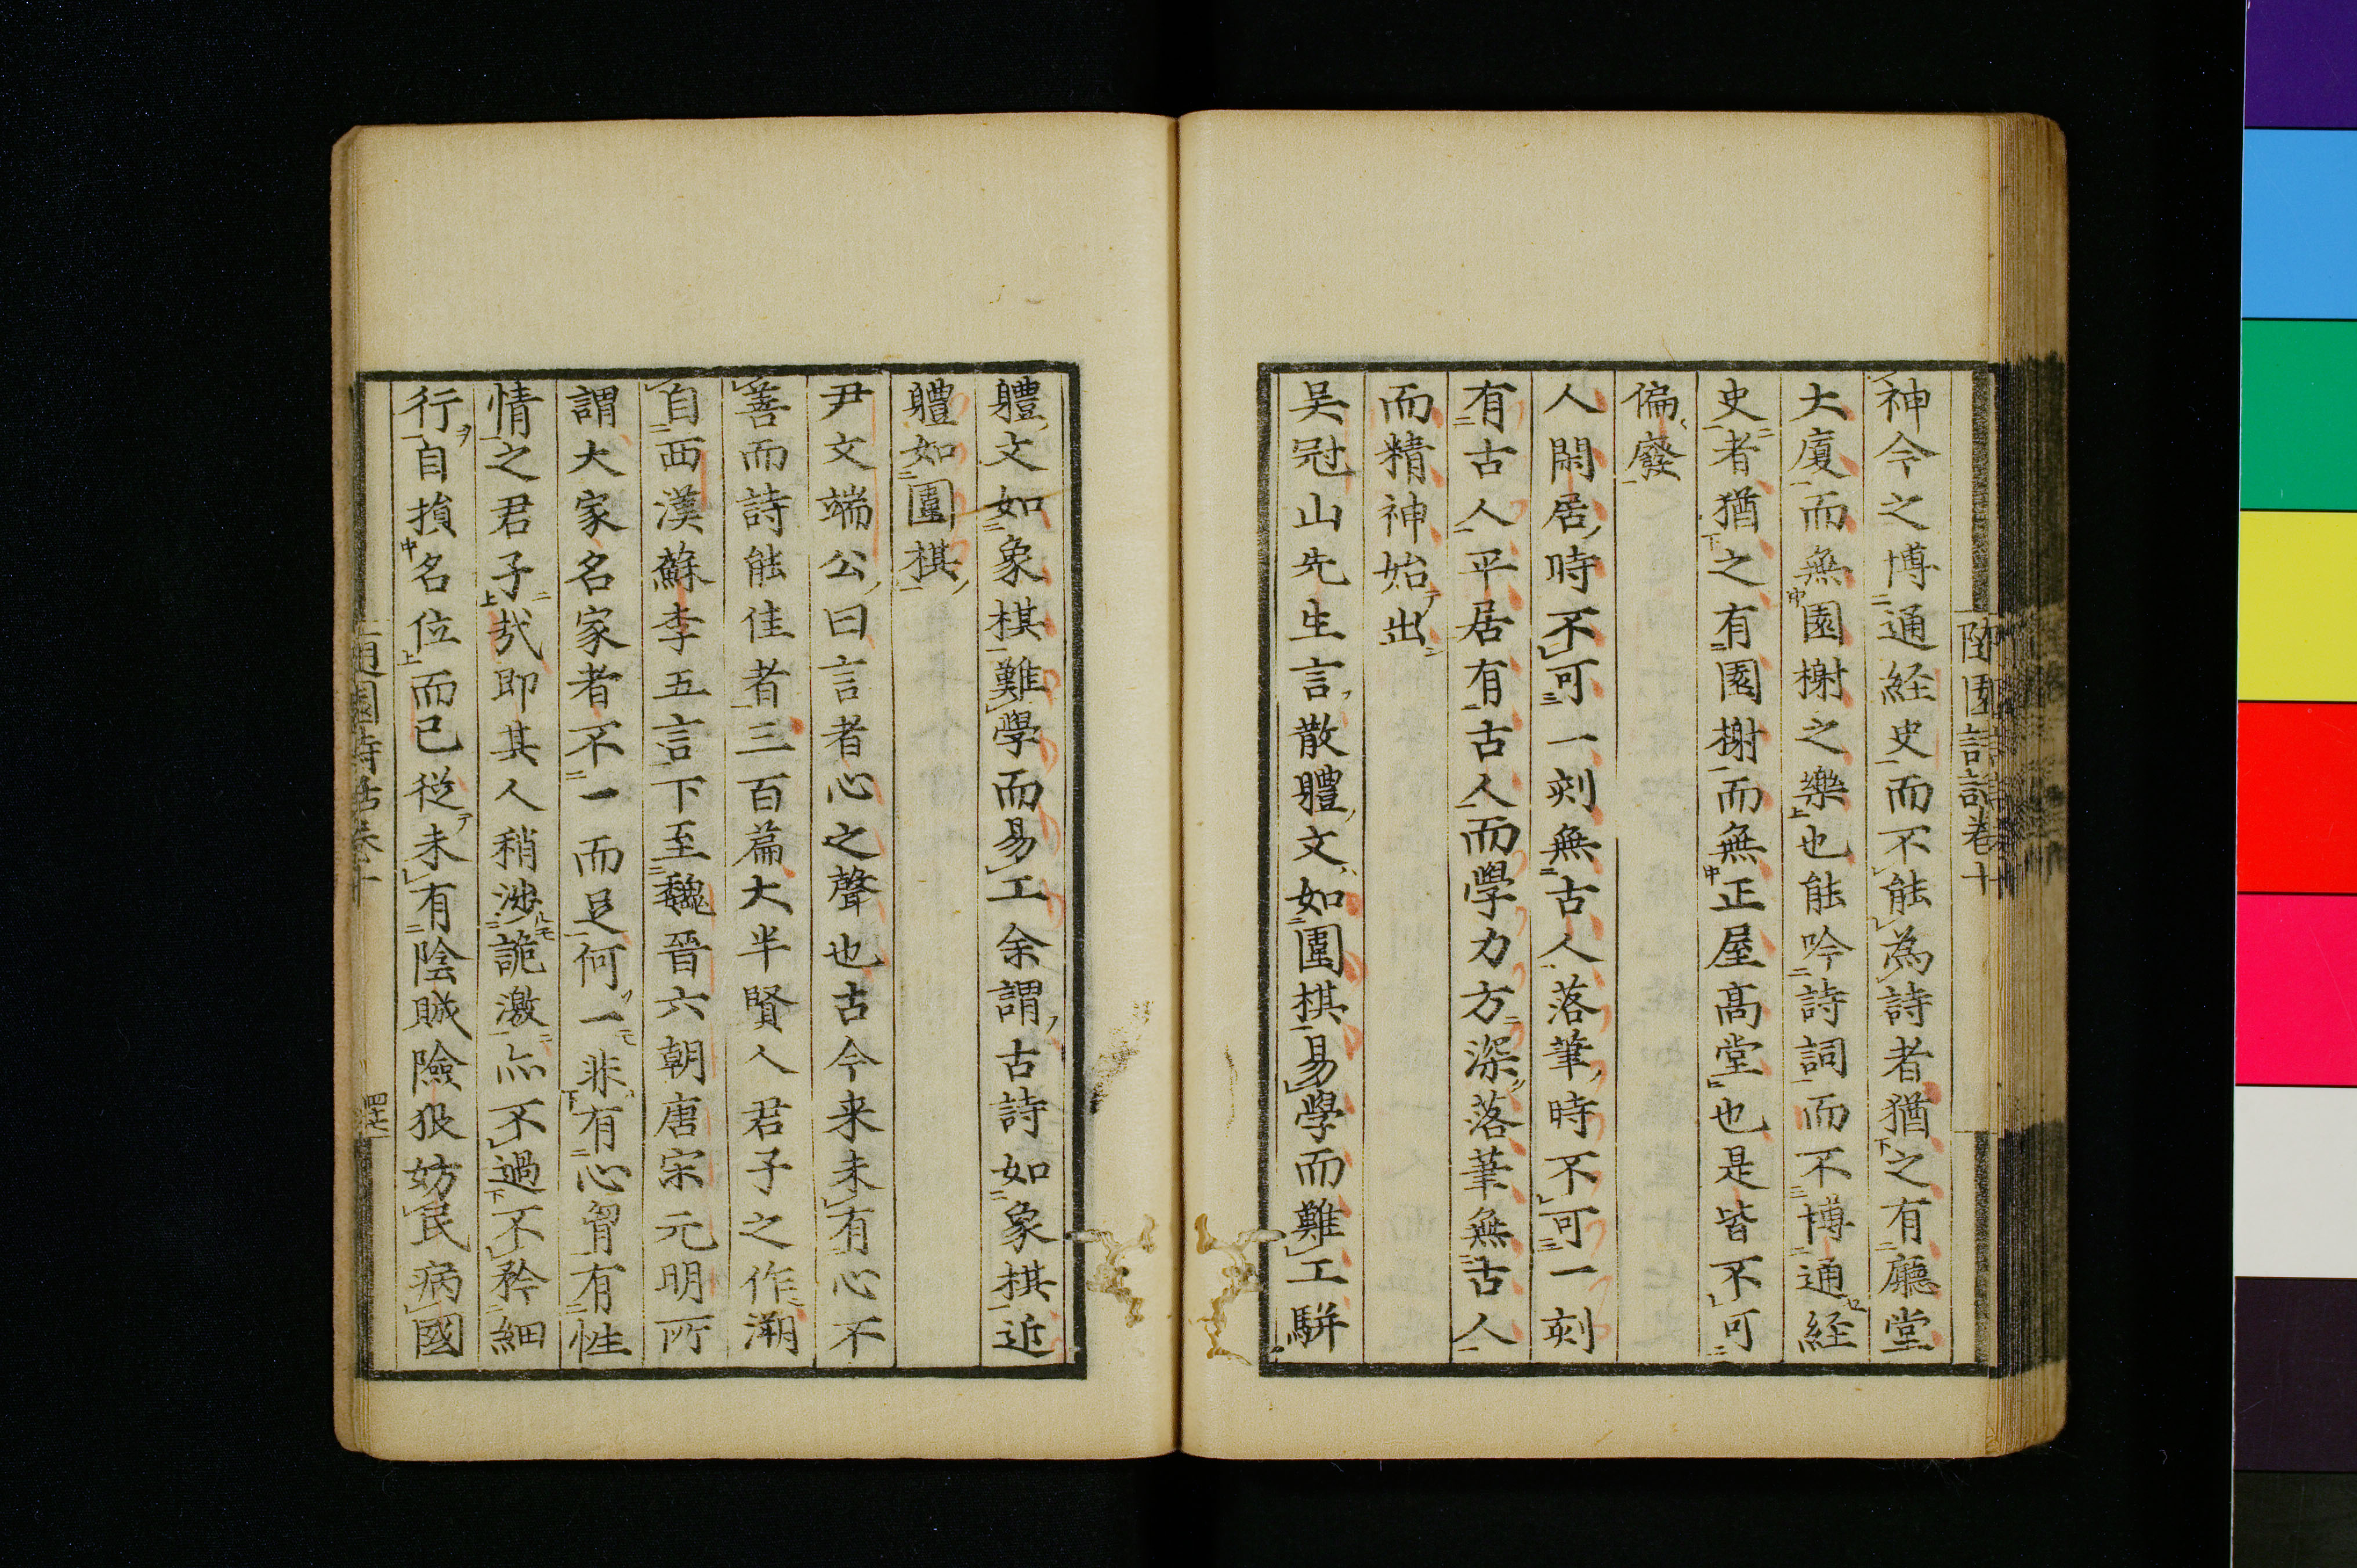 隨園詩話卷十
神今之博通経史而不能為詩者猶之有廳堂
大廈而無園榭之樂也能吟詩詞而不博通経
史者猶之有園榭而無正屋高堂也是皆不可
偏廢
人閑居時不可一刻無古人落筆時不可一刻
有古人平居有古人而學力方深落筆無古人
而精神始出
吴冠山先生言散軆文如圍棋易學而難工駢
軆文如象棋難學而易工余謂古詩如象棋近
軆如圍棋
尹文端公曰言者心之聲也古今来未有心不
善而詩能佳者三百篇大半賢人君子之作溯
自西漢蘇李五言下至魏晉六朝唐宋元明所
謂大家名家者不一而足何一非有心胷有性
情之君子㢤即其人稍渉詭激亦不過不矜細
行自損名位而已從未有陰賊險狠妨民病國
隨園詩話卷十